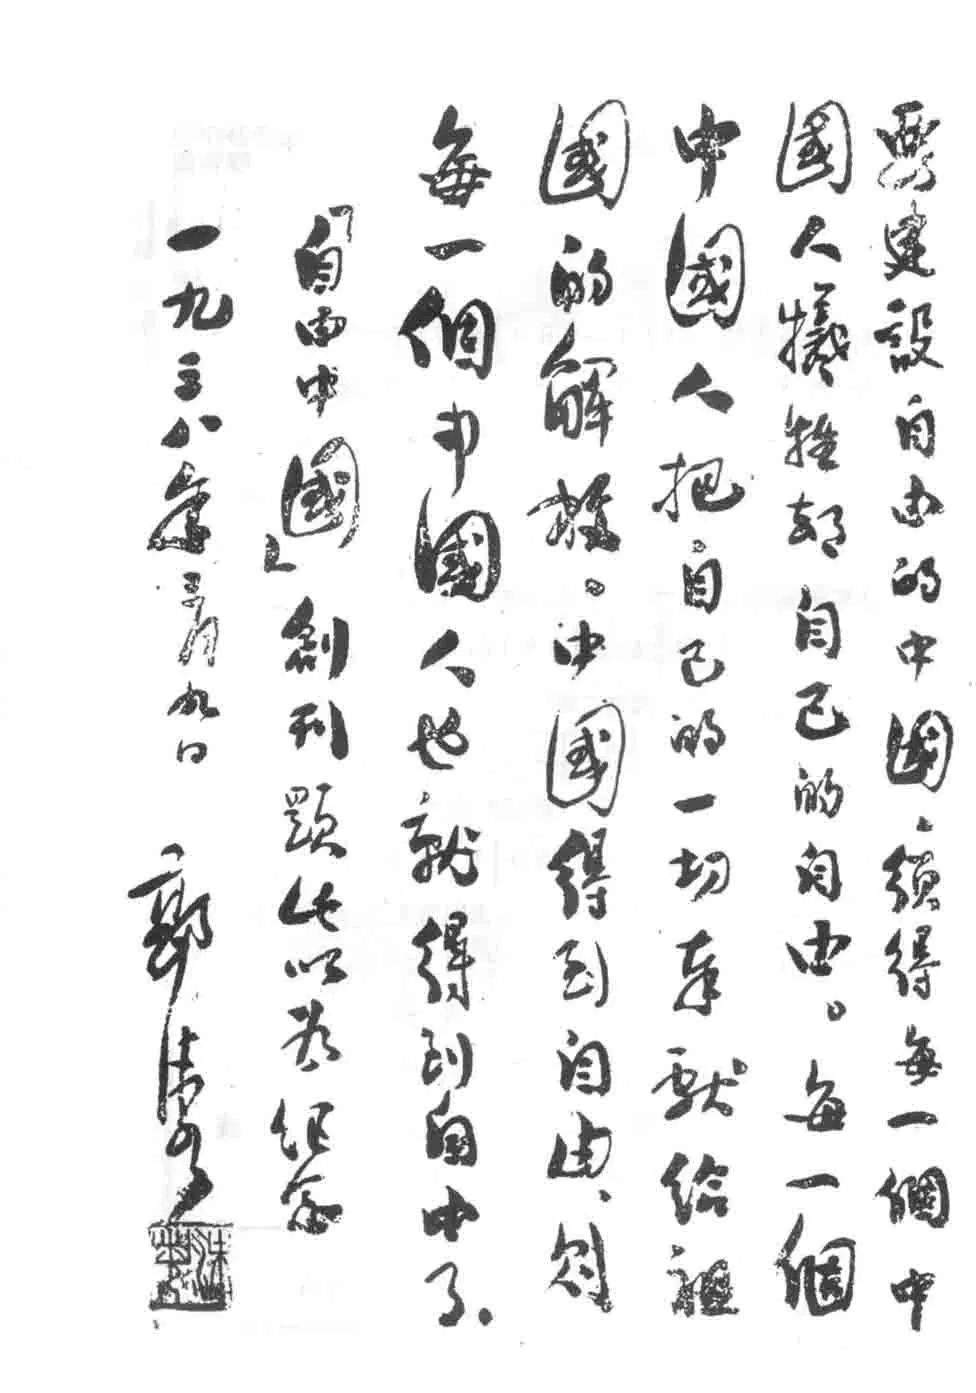 要建設自由的中國，須得每一個中
國人犧牲却自己的自由。每一個
中國人把自己的一切奉獻給祖
國的解放。中國得到自由、則
每一個中國人也就得到自由了。
「自由中國」創刊題此以為紀念
一九三八年三月九日 郭沫若
沫若